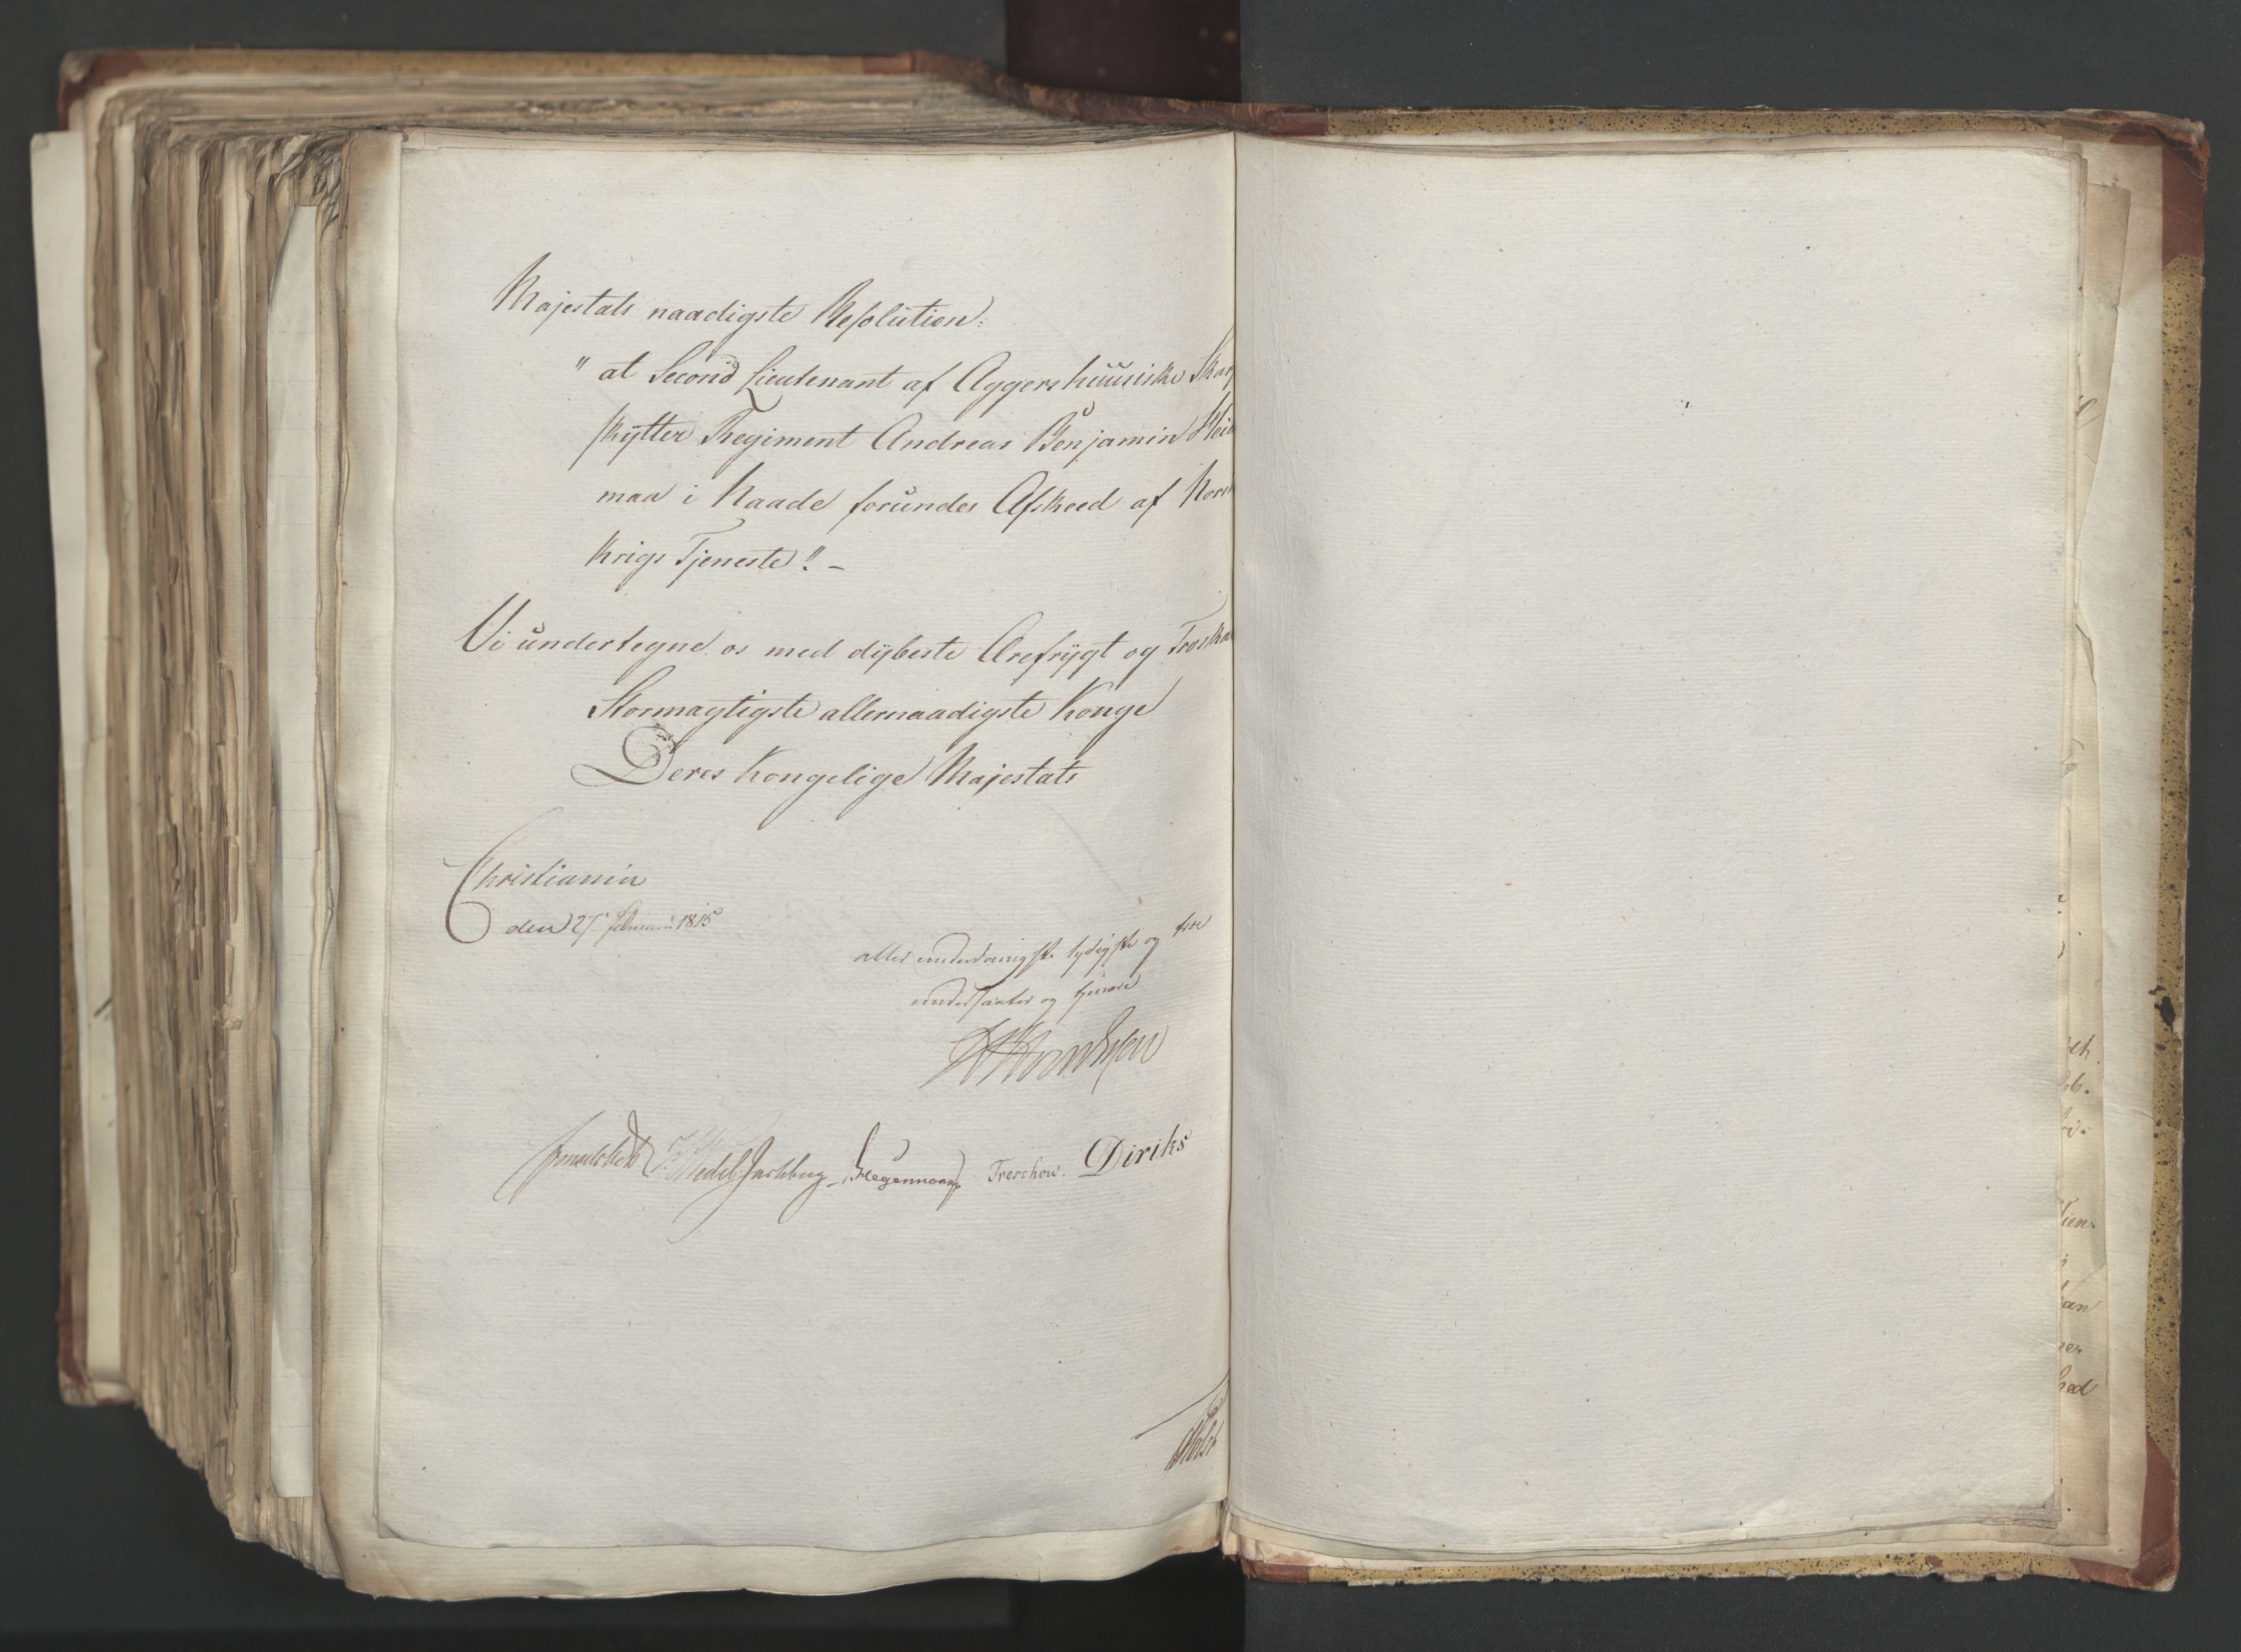 Majestæts naadigste Resolution:
" at Second Lieutenant af Aggershuusiske Skarp
skytter Regiment Andreas Benjamin
maa i Naade forundes Afskeed af Norsk
Krigs Tjeneste!! –
Vi undertegne os med dybeste Ærefrygt og Troskab
Stormægtigste allernaadigste Konge
Deres Kongelige Majestæts
Christiania
den februar 1815
aller underdanigste lydigste og troe
undersaatter og tjenere
Wedel Jarlsberg Hegermann Treschow. Diriks
Holst